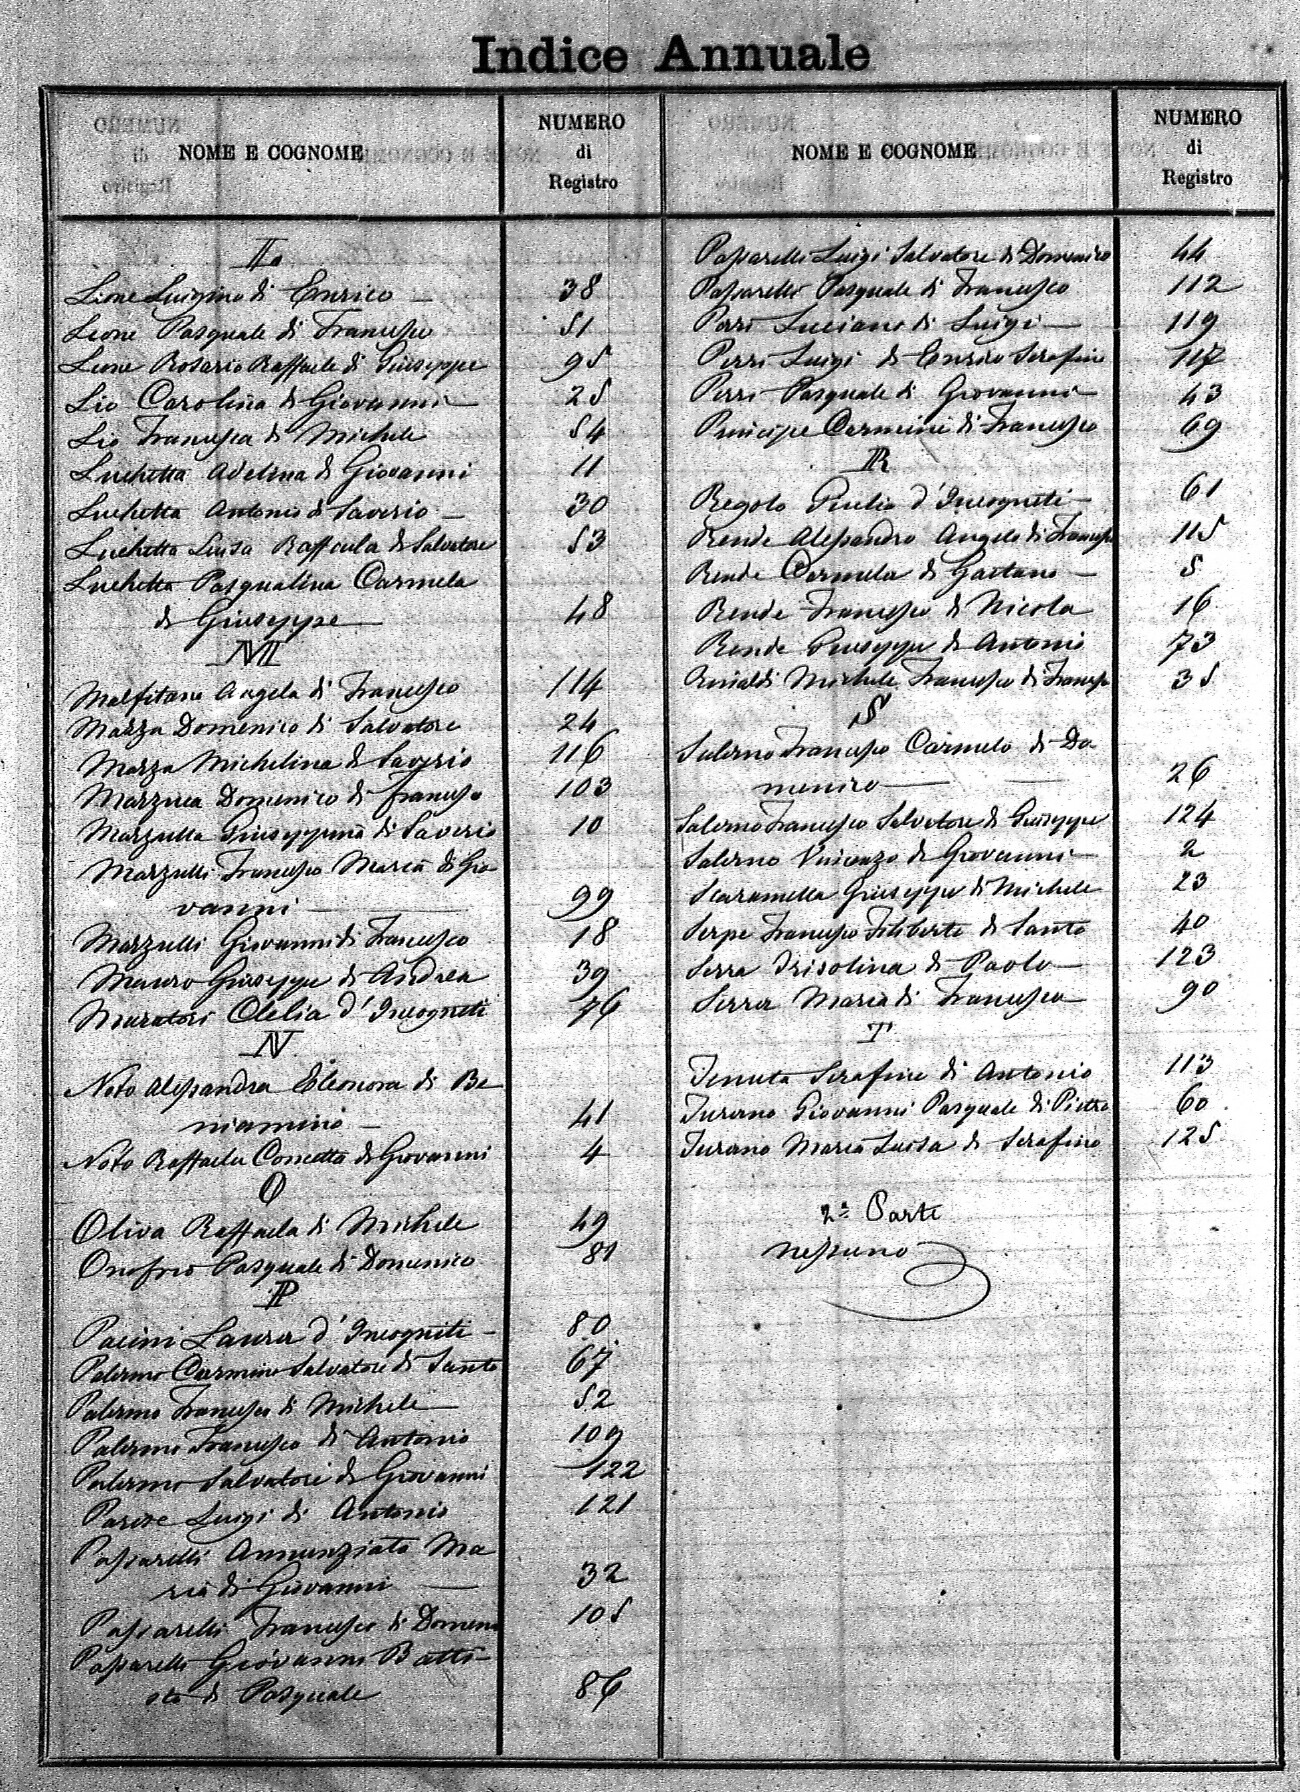 Indice Annuale
NOME E COGNOME
NUMERO
di
Registro
L
Leone Luigino di Enrico — 38
Leone Pasquale di Francesco 51
Leone Rosario Raffaele di Giuseppe 95
Lio Carolina di Giovanni — 25
Lio Francesca di Michele 54
Luchetta Adelina di Giovanni 11
Luchetta Antonio di Saverio — 30
Luchetta Luisa Raffaela di Salvatore 53
Luchetta Pasqualina Carmela
di Giuseppe — 48
M
Malfitano Angela di Francesco 114
Mazza Domenico di Salvatore 24
Mazza Michelina di Saverio 116
Marzuca Domenico di Francesco 103
Marzulla Giuseppina di Saverio 10
Marzulli Francesco Maria di Gio-
vanni — 99
Marzulli Giovanni di Francesco 18
Mauro Giuseppe di Andrea 39
Muratori Clelia d'Incogniti 76
N
Noto Alessandra Eleonora di Be
niamino — 41
Noto Raffaela Concetta di Giovanni 4
O
Oliva Raffaela di Michele 49
Onofrio Pasquale di Domenico 81
P
Pacini Laura d'Incogniti — 80
Palermo Carmine Salvatore di Santo 67
Palermo Francesco di Michele — 52
Palermo Francesco di Antonio 109
Palermo Salvatore di Giovanni 122
Parise Luigi di Antonio 121
Passarelli Annunziata Ma
ria di Giovanni — 32
Passarelli Francesco di Domeni 105
Passarelli Giovanni Batti-
sta di Pasquale 86
NOME E COGNOME
NUMERO
di
Registro
Passarelli Luigi Salvatore di Domenico 44
Passarelli Pasquale di Francesco 112
Perri Luciano di Luigi — 119
Perri Luigi di Enrico Serafino 117
Perri Pasquale di Giovanni — 43
Principe Carmine di Francesco 69
R
Regolo Giulio d'Incogniti — 61
Rende Alessandro Angelo di Francesco 115
Rende Carmela di Gaetano — 5
Rende Francesco di Nicola 16
Rende Giuseppe di Antonio 73
Rinaldi Michele Francesco di Francesco 35
S
Salerno Francesco Carmelo di Do-
menico — 26
Salerno Francesco Salvatore di Giuseppe 124
Salerno Vincenzo di Giovanni — 2
Scaramella Giuseppe di Michele 23
Serpe Francesco Filiberto di Santo 40
Serra Isolina di Paolo — 123
Serra Maria di Francesco 90
T
Tenuta Serafino di Antonio 113
Turano Giovanni Pasquale di Pietro 60
Turano Maria Luisa di Serafino 125
2ª Parte
nessuno